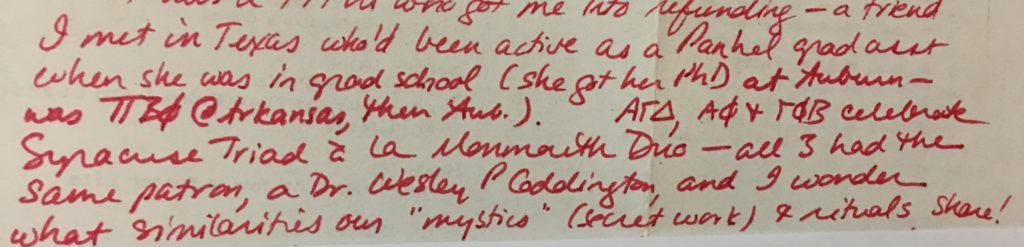 me into refunding – a friend
I met in Texas who'd been active as a Panhel grad asst
when she was in grad school (she got her PhD) at Auburn –
was ΠΒΦ @ Arkansas, then Aub.). ΑΓΔ, ΑΦ & ΓΦΒ celebrate
Syracuse Triad à la Monmouth Duo – all 3 had the
same patron, a Dr. Wesley P Coddington, and I wonder
what similarities our "mystics" (secret work) & rituals share!